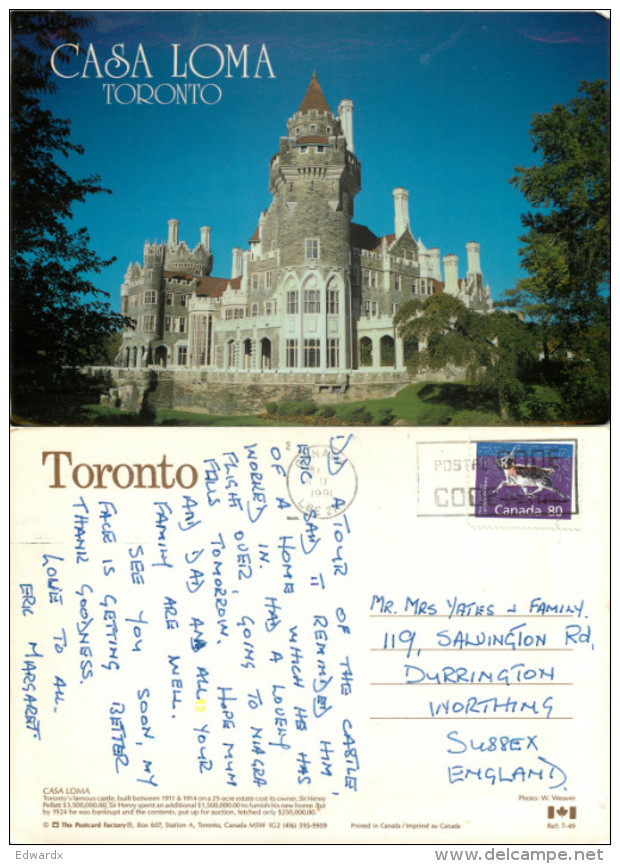 CASA LOMA
TORONTO
Toronto
DID A TOUR OF THE CASTLE,
ERIC SAID IT REMINDED HIM
OF A HOME WHICH HE HAS
WORKED IN. HAD A LOVELY
FLIGHT OVER, GOING TO NIAGRA
FALLS TOMORROW. HOPE MUM
AND DAD AND ALL YOUR
FAMILY ARE WELL.
SEE YOU SOON, MY
FACE IS GETTING BETTER
THANK GOODNESS.
LOVE TO ALL.
ERIC MARGARET
CANADA
1991
POSTAL CODE
CODE
Canada 80
MR. MRS YATES & FAMILY.
119, SALVINGTON Rd,
DURRINGTON
WORTHING
SUSSEX
ENGLAND.
CASA LOMA
Toronto's famous castle, built between 1911 & 1914 on a 25-acre estate cost its owner, Sir Henry
Pellatt $3,500,000.00. Sir Henry spent an additional $1,500,000.00 to furnish his new home. But
by 1924 he was bankrupt and the contents, put up for auction, fetched only $250,000.00.
© The Postcard Factory®, Box 607, Station A, Toronto, Canada M5W 1G2 (416) 595-9909
Printed in Canada / Imprimé au Canada
Photo: W. Weaver
Ref: T-49
Edwardx
delcampe.net